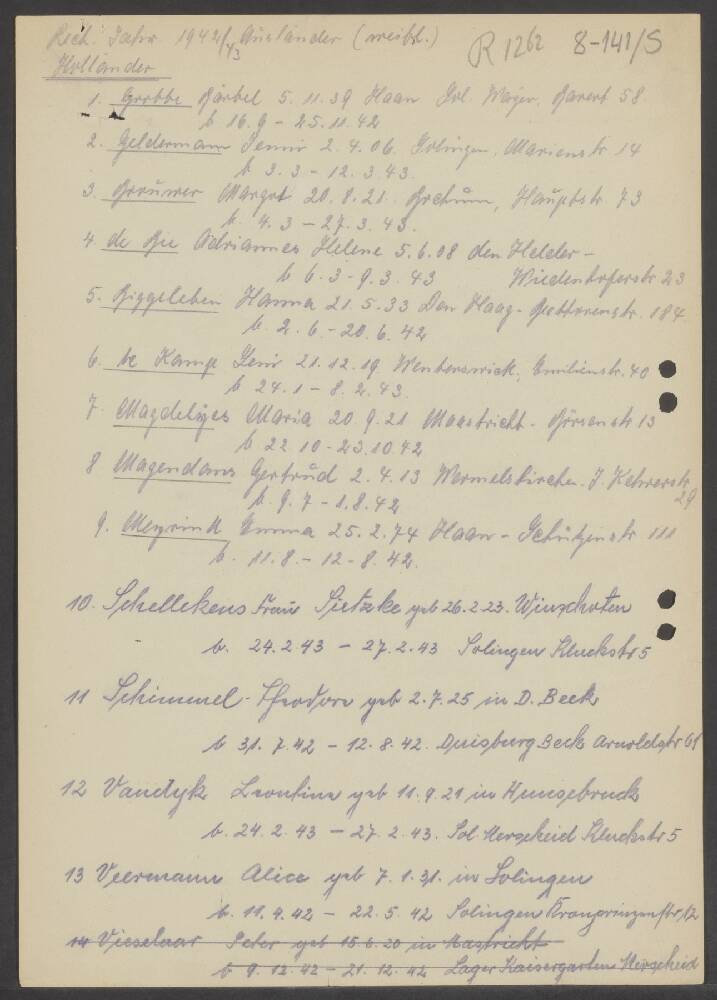 Rech. Jahr 1942/43 Ausländer (weibl.) R 1262 8-141/S
Holländer
1. Grobbe Bärbel 5.11.39 Haan 58
b 16.9 - 25.11.42
2. Geldermann 2.4.06 Solingen, Marienstr 14
b 3.3 - 12.3.43.
3. Brouwer Margret 20.8.21 Bochum, Hauptstr 73
b. 4.3 - 27.3.43.
4. de Bie Adriannes Helene 5.6.08 den Helder -
b 6.3 - 9.3.43 Wiedenhoferstr 23
5. Biggeleben Hanna 21.5.33 Den Haag - 184
b. 2.6 - 20.6.42
6. te Kamp Leni 21.12.19 Emilienstr. 40
b 24.1 - 8.2.43.
7. Magdelijes Maria 20.9.21 Maastricht - 13
b 22.10 - 23.10.42
8 Magendans Gertrud 2.4.13 Wermelskirchen. J. Kehrerstr
29
b. 9.7 - 1.8.42
9. Emma 25.2.74 Haan - Schützenstr 111
b. 11.8. - 12-8.42.
10. Schellekens Frau Sietzke geb 26.2.23. Winschoten
b. 24.2.43 - 27.2.43 Solingen Kluckstr 5
11 Schimmel - Theodora geb 2.7.25 in D. Beek
b 31.7.42 - 12.8.42. Duisburg Beek Arnoldstr 61
12 Vandyk Leontine geb 11.9.21 in Hunsebruck
b. 24.2.43 - 27.2.43. Sol Merscheid Kluckstr 5
13 Veermann Alice geb 7.1.31. in Solingen
b. 11.4.42 - 22.5.42 Solingen Kronprinzenstr. 12
14 Vieselaar Peter geb 15.6.20 in Mastricht
b 9.12.42 - 21.12.42 Lager Kaisergarten Merscheid